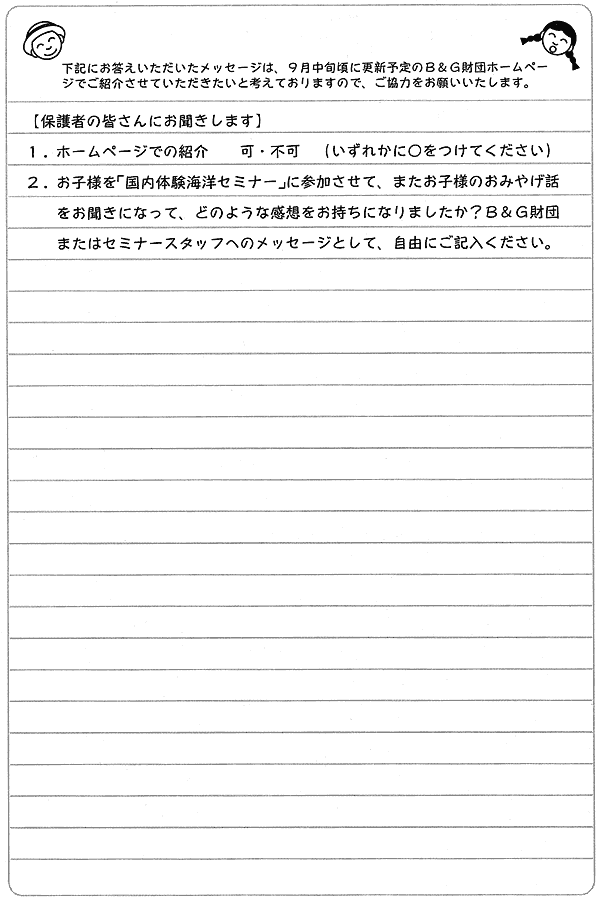 下記にお答えいただいたメッセージは、９月中旬頃に更新予定のＢ＆Ｇ財団ホームペー
ジでご紹介させていただきたいと考えておりますので、ご協力をお願いいたします。
【保護者の皆さんにお聞きします】
１．ホームページでの紹介　　可・不可　（いずれかに〇をつけてください）
２．お子様を「国内体験海洋セミナー」に参加させて、またお子様のおみやげ話
をお聞きになって、どのような感想をお持ちになりましたか？Ｂ＆Ｇ財団
またはセミナースタッフへのメッセージとして、自由にご記入ください。